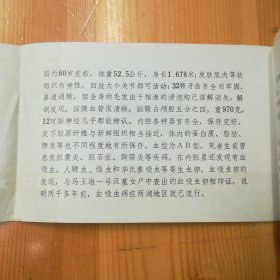 龄约60岁左右，体重52.5公斤，身长1.678米；皮肤肌肉等软
组织有弹性，四肢大小关节都可活动；32颗牙齿齐全而牢固，
鼻道通畅，但全身的毛发由于棺液的浸泡均已溶解消失。解
剖发现，脑膜血管很清晰，脑髓占颅腔五分之四，重970克，
12对脑神经几乎都能辨认，内脏各种器官齐全，保存完好。
皮下胶原纤维与新鲜组织相当接近，体内的蛋白质、脂肪、
糖类等也不同程度地有所保存。血型为AB型。死者生前曾
患有胆囊炎、胆石症、胸膜炎等疾病。在内脏里还发现有血
吸虫、人鞭虫、绦虫和华氏枝吸虫等寄生虫卵，血吸虫卵的
发现，与马王堆一号汉墓女尸中查出的血吸虫卵相印证，说
明两千多年前，血吸虫病在两湖地区就已流行。